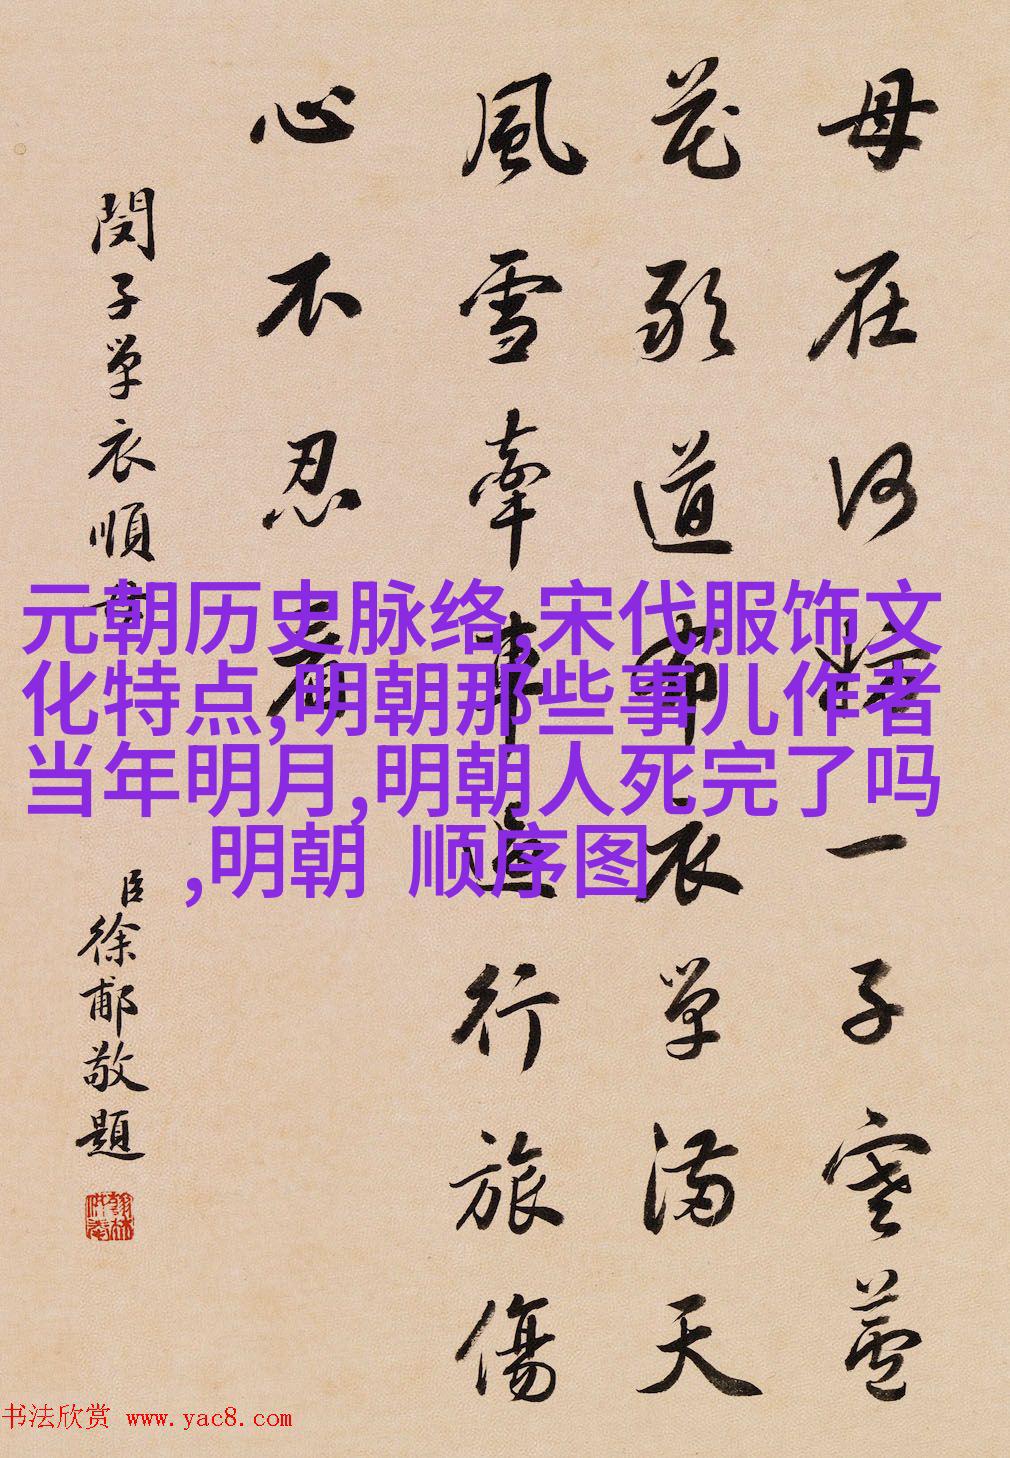 母在何一子寒蘆
花敢道布衣單滿天
風雪牽車行旅傷
心不忍看
閔子單衣順母
臣徐郙敬題
元朝历史脉络,宋代服饰文
化特点,明朝那些事儿作者
当年明月,明朝人死完了吗
,明朝 顺序图
书法欣赏 www.yac8.com